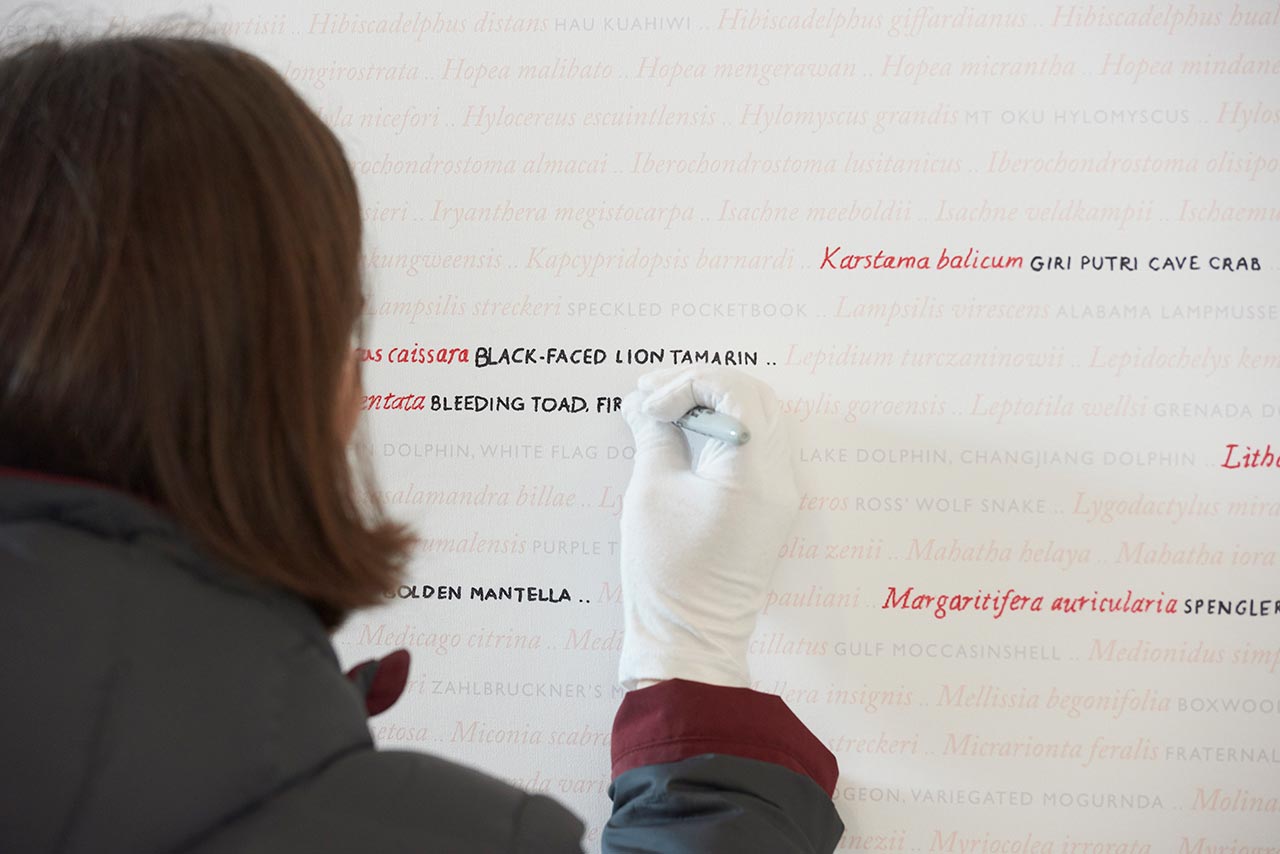 Hibiscadelphus distans HAU KUAHIWI .. Hibiscadelphus giffardianus .. Hibiscadelphus hual
longirostrata .. Hopea malibato .. Hopea mengerawan .. Hopea micrantha .. Hopea mindane
nicefori .. Hylocereus escuintlensis .. Hylomyscus grandis MT OKU HYLOMYSCUS ..
almacai .. Iberochondrostoma lusitanicus .. Iberochondrostoma olisipo
Iryanthera megistocarpa .. Isachne meeboldii .. Isachne veldkampii .. Ischaemu
Kapcypridopsis barnardi .. Karstama balicum GIRI PUTRI CAVE CRAB
Lampsilis streckeri SPECKLED POCKETBOOK .. Lampsilis virescens ALABAMA LAMPMUSSE
caissara BLACK-FACED LION TAMARIN .. Lepidium turczaninowii .. Lepidochelys kem
BLEEDING TOAD, FIR goroensis .. Leptotila wellsi GRENADA D
DOLPHIN, WHITE FLAG DO LAKE DOLPHIN, CHANGJIANG DOLPHIN .. Litho
billae .. ROSS' WOLF SNAKE .. Lygodactylus mira
PURPLE zenii .. Mahatha helaya .. Mahatha iora
GOLDEN MANTELLA .. pauliani .. Margaritifera auricularia SPENGLER
.. Medicago citrina .. GULF MOCCASINSHELL .. Medionidus simp
ZAHLBRUCKNER'S insignis .. Mellissia begonifolia BOXWOO
.. Miconia scabra streckeri .. Micrarionta feralis FRATERNAL
VARIEGATED MOGURNDA .. Molina
Myriocolea irrorata ..